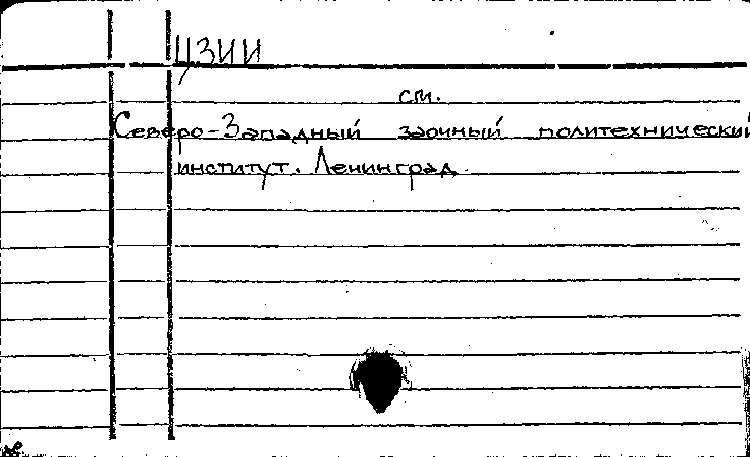 ЦЗИИ
см.
Северо-Западный заочный политехнический
институт. Ленинград.